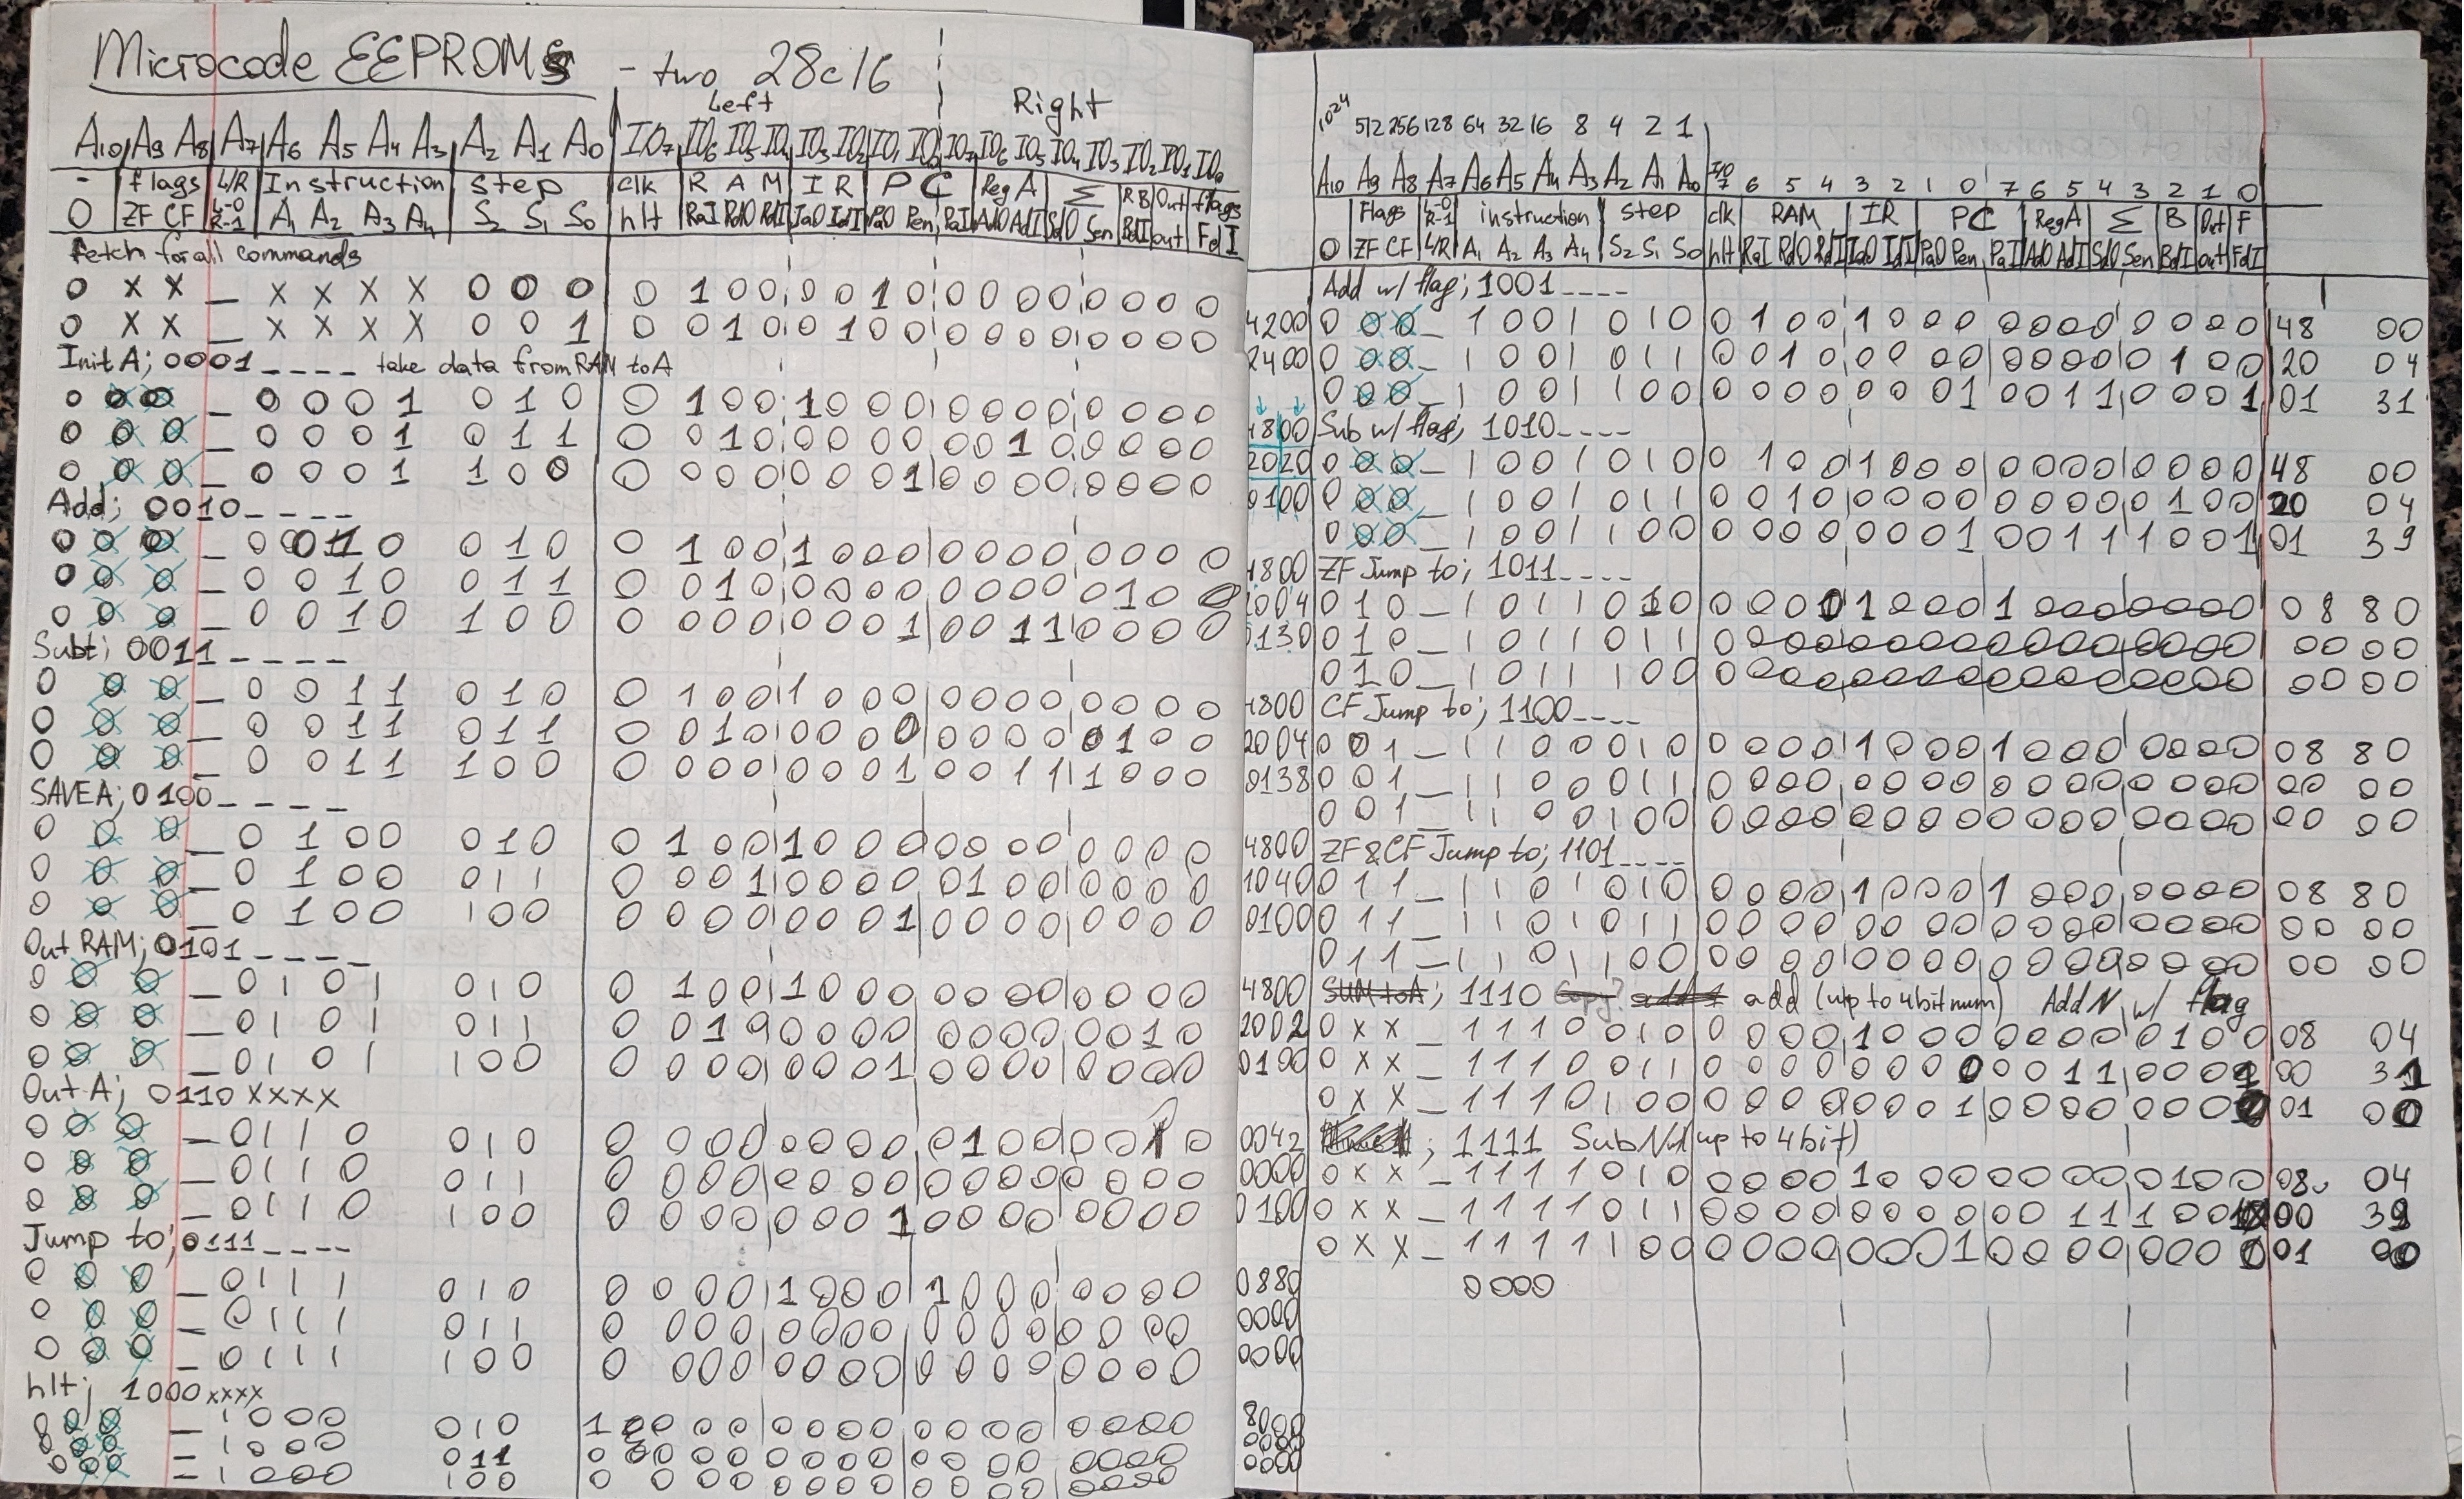 Microcode EEPROMs - two 28c16
Left Right
A10 A9 A8 A7 A6 A5 A4 A3 A2 A1 A0 IO7 IO6 IO5 IO4 IO3 IO2 IO1 IO0 IO7 IO6 IO5 IO4 IO3 IO2 IO1 IO0
- flags L/R Instruction Step clk RAM IR PC Reg A Σ RB Out flags
0 ZF CF L-0 R-1 A1 A2 A3 A4 S2 S1 S0 hlt RaI RdO RdI IaO IdI PaO Pen PaI AdO AdI SdO Sen BdI out FdI
Fetch for all commands
0 X X _ X X X X 0 0 0 0 1 0 0 0 0 1 0 0 0 0 0 0 0 0 0
0 X X _ X X X X 0 0 1 0 0 1 0 0 1 0 0 0 0 0 0 0 0 0 0
Init A; 0001_ _ _ _ take data from RAM to A
0 0 0 _ 0 0 0 1 0 1 0 0 1 0 0 1 0 0 0 0 0 0 0 0 0 0 0
0 0 0 _ 0 0 0 1 0 1 1 0 0 1 0 0 0 0 0 0 0 1 0 0 0 0 0
0 0 0 _ 0 0 0 1 1 0 0 0 0 0 0 0 0 0 1 0 0 0 0 0 0 0 0
Add; 0010_ _ _ _
0 0 0 _ 0 0 1 0 0 1 0 0 1 0 0 1 0 0 0 0 0 0 0 0 0 0 0
0 0 0 _ 0 0 1 0 0 1 1 0 0 1 0 0 0 0 0 0 0 0 0 0 1 0 0
0 0 0 _ 0 0 1 0 1 0 0 0 0 0 0 0 0 0 1 0 0 1 1 0 0 0 0
Subt; 0011_ _ _ _
0 0 0 _ 0 0 1 1 0 1 0 0 1 0 0 1 0 0 0 0 0 0 0 0 0 0 0
0 0 0 _ 0 0 1 1 0 1 1 0 0 1 0 0 0 0 0 0 0 0 0 0 1 0 0
0 0 0 _ 0 0 1 1 1 0 0 0 0 0 0 0 0 0 1 0 0 1 1 1 0 0 0
SAVE A; 0100_ _ _ _
0 0 0 _ 0 1 0 0 0 1 0 0 1 0 0 1 0 0 0 0 0 0 0 0 0 0 0
0 0 0 _ 0 1 0 0 0 1 1 0 0 0 1 0 0 0 0 0 1 0 0 0 0 0 0
0 0 0 _ 0 1 0 0 1 0 0 0 0 0 0 0 0 0 1 0 0 0 0 0 0 0 0
Out RAM; 0101_ _ _ _
0 0 0 _ 0 1 0 1 0 1 0 0 1 0 0 1 0 0 0 0 0 0 0 0 0 0 0
0 0 0 _ 0 1 0 1 0 1 1 0 0 1 0 0 0 0 0 0 0 0 0 0 0 1 0
0 0 0 _ 0 1 0 1 1 0 0 0 0 0 0 0 0 0 1 0 0 0 0 0 0 0 0
Out A; 0110 XXXX
0 0 0 _ 0 1 1 0 0 1 0 0 0 0 0 0 0 0 0 0 1 0 0 0 0 1 0
0 0 0 _ 0 1 1 0 0 1 1 0 0 0 0 0 0 0 0 0 0 0 0 0 0 0 0
0 0 0 _ 0 1 1 0 1 0 0 0 0 0 0 0 0 0 1 0 0 0 0 0 0 0 0
Jump to; 0111_ _ _ _
0 0 0 _ 0 1 1 1 0 1 0 0 0 0 0 1 0 0 0 1 0 0 0 0 0 0 0
0 0 0 _ 0 1 1 1 0 1 1 0 0 0 0 0 0 0 0 0 0 0 0 0 0 0 0
0 0 0 _ 0 1 1 1 1 0 0 0 0 0 0 0 0 0 0 0 0 0 0 0 0 0 0
hlt; 1000xxxx
0 0 0 _ 1 0 0 0 0 1 0 1 0 0 0 0 0 0 0 0 0 0 0 0 0 0 0
0 0 0 _ 1 0 0 0 0 1 1 0 0 0 0 0 0 0 0 0 0 0 0 0 0 0 0
0 0 0 _ 1 0 0 0 1 0 0 0 0 0 0 0 0 0 0 0 0 0 0 0 0 0 0
1024 512 256 128 64 32 16 8 4 2 1
A10 A9 A8 A7 A6 A5 A4 A3 A2 A1 A0 I/O 7 6 5 4 3 2 1 0 7 6 5 4 3 2 1 0
Flags L-0 R-1 instruction step clk RAM IR PC Reg A Σ B Out F
0 ZF CF L/R A1 A2 A3 A4 S2 S1 S0 hlt RaI RdO RdI IaO IdI PaO Pen PaI AdO AdI SdO Sen BdI out FdI
Add w/ flag; 1001_ _ _ _
4200 0 0 0 _ 1 0 0 1 0 1 0 0 1 0 0 1 0 0 0 0 0 0 0 0 0 0 0 48 00
2400 0 0 0 _ 1 0 0 1 0 1 1 0 0 1 0 0 0 0 0 0 0 0 0 0 1 0 0 20 04
0 0 0 _ 1 0 0 1 1 0 0 0 0 0 0 0 0 0 1 0 0 1 1 0 0 0 1 01 31
4800 Sub w/ flag; 1010_ _ _ _
2020 0 0 0 _ 1 0 0 1 0 1 0 0 1 0 0 1 0 0 0 0 0 0 0 0 0 0 0 48 00
0100 0 0 0 _ 1 0 0 1 0 1 1 0 0 1 0 0 0 0 0 0 0 0 0 0 1 0 0 20 04
0 0 0 _ 1 0 0 1 1 0 0 0 0 0 0 0 0 0 1 0 0 1 1 1 0 0 1 01 39
4800 ZF Jump to; 1011_ _ _ _
2004 0 1 0 _ 1 0 1 1 0 1 0 0 0 0 0 1 0 0 0 1 0 0 0 0 0 0 0 08 80
0130 0 1 0 _ 1 0 1 1 0 1 1 0 0 0 0 0 0 0 0 0 0 0 0 0 0 0 0 00 00
0 1 0 _ 1 0 1 1 1 0 0 0 0 0 0 0 0 0 0 0 0 0 0 0 0 0 0 00 00
4800 CF Jump to; 1100_ _ _ _
2004 0 0 1 _ 1 1 0 0 0 1 0 0 0 0 0 1 0 0 0 1 0 0 0 0 0 0 0 08 80
0138 0 0 1 _ 1 1 0 0 0 1 1 0 0 0 0 0 0 0 0 0 0 0 0 0 0 0 0 00 00
0 0 1 _ 1 1 0 0 1 0 0 0 0 0 0 0 0 0 0 0 0 0 0 0 0 0 0 00 00
4800 ZF&CF Jump to; 1101_ _ _ _
1040 0 1 1 _ 1 1 0 1 0 1 0 0 0 0 0 1 0 0 0 1 0 0 0 0 0 0 0 08 80
0100 0 1 1 _ 1 1 0 1 0 1 1 0 0 0 0 0 0 0 0 0 0 0 0 0 0 0 0 00 00
0 1 1 _ 1 1 0 1 1 0 0 0 0 0 0 0 0 0 0 0 0 0 0 0 0 0 0 00 00
4800 SUM to A; 1110 Copy? add 1 add (up to 4bit num) Add N w/ flag
2002 0 x x _ 1 1 1 0 0 1 0 0 0 0 0 1 0 0 0 0 0 0 0 0 1 0 0 08 04
0100 0 x x _ 1 1 1 0 0 1 1 0 0 0 0 0 0 0 0 0 0 1 1 0 0 0 1 00 31
0 x x _ 1 1 1 0 1 0 0 0 0 0 0 0 0 0 1 0 0 0 0 0 0 0 0 01 00
0042 ; 1111 Sub N (up to 4bit)
0000 0 x x _ 1 1 1 1 0 1 0 0 0 0 0 1 0 0 0 0 0 0 0 0 1 0 0 08 04
0100 0 x x _ 1 1 1 1 0 1 1 0 0 0 0 0 0 0 0 0 0 1 1 1 0 0 1 00 39
0 x x _ 1 1 1 1 1 0 0 0 0 0 0 0 0 0 1 0 0 0 0 0 0 0 0 01 00
0880 0000
0000
0000
8000
0000
0000